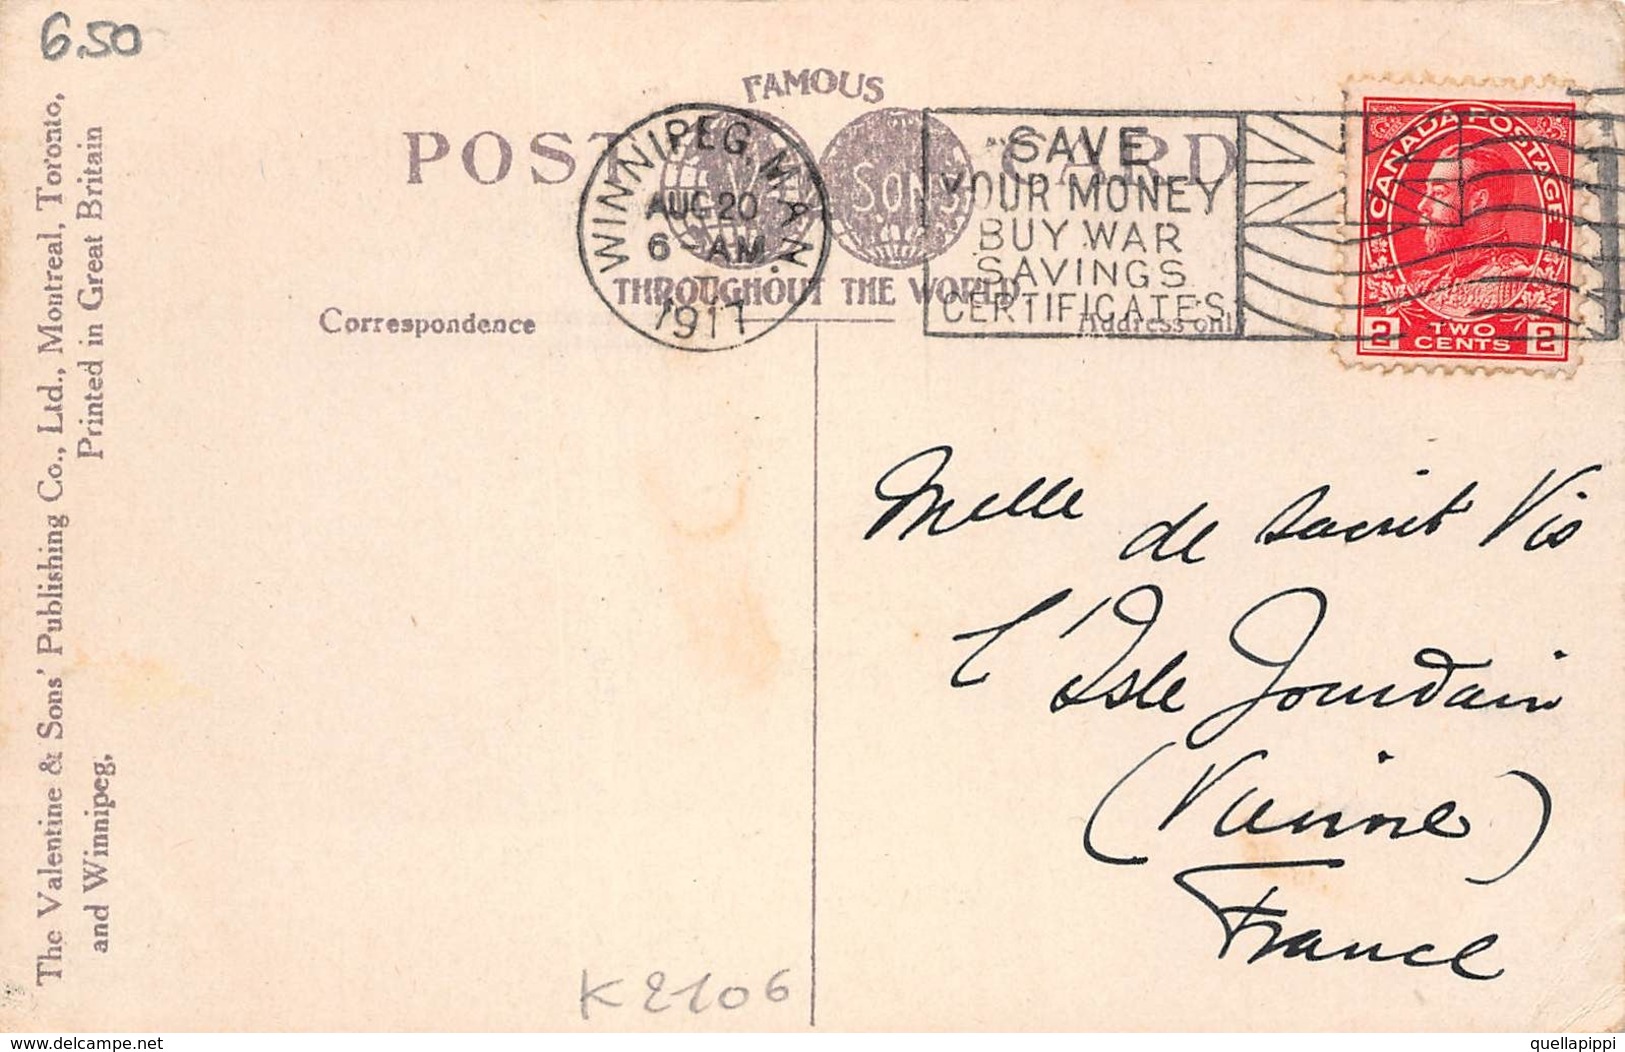 6.50
FAMOUS
POST CARD
V Sons
THROUGHOUT THE WORLD.
WINNIPEG, MAN.
AUG 20
6 - AM
1917
SAVE
YOUR MONEY
BUY WAR
SAVINGS
CERTIFICATES
CANADA POSTAGE
2 TWO CENTS 2
Correspondence
Address only
The Valentine & Sons' Publishing Co., Ltd., Montreal, Toronto,
and Winnipeg,
Printed in Great Britain
Melle de Saint Vis
l'Isle Jourdain
(Vienne)
France
K2106
delcampe.net
quellapippi